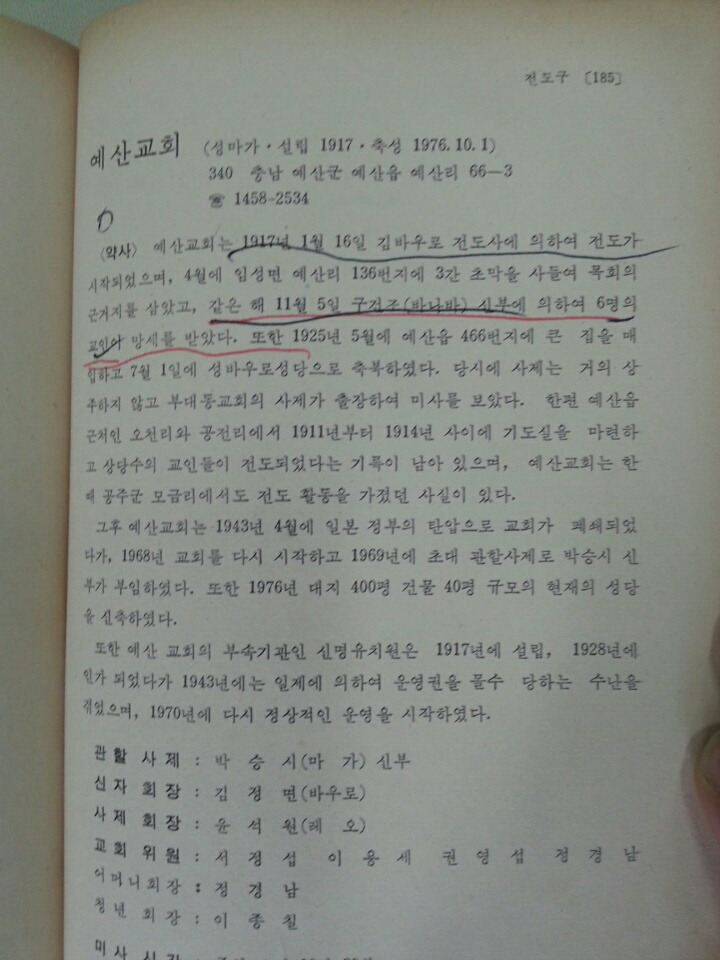 전도구 [185]
예산교회 (성마가·설립 1917·축성 1976.10.1)
340 충남 예산군 예산읍 예산리 66—3
☎ 1458-2534
〈약사〉 예산교회는 1917년 1월 16일 김바우로 전도사에 의하여 전도가
시작되었으며, 4월에 임성면 예산리 136번지에 3간 초막을 사들여 목회의
근거지를 삼았고, 같은 해 11월 5일 구건조(바나바) 신부에 의하여 6명의
교인이 망세를 받았다. 또한 1925년 5월에 예산읍 466번지에 큰 집을 매
입하고 7월 1일에 성바우로성당으로 축복하였다. 당시에 사제는 거의 상
주하지 않고 부대동교회의 사제가 출장하여 미사를 보았다. 한편 예산읍
근처인 오천리와 공전리에서 1911년부터 1914년 사이에 기도실을 마련하
고 상당수의 교인들이 전도되었다는 기록이 남아 있으며, 예산교회는 한
때 공주군 모금리에서도 전도 활동을 가졌던 사실이 있다.
그후 예산교회는 1943년 4월에 일본 정부의 탄압으로 교회가 폐쇄되었
다가, 1968년 교회를 다시 시작하고 1969년에 초대 관할사제로 박승시 신
부가 부임하였다. 또한 1976년 대지 400평 건물 40평 규모의 현재의 성당
을 신축하였다.
또한 예산 교회의 부속기관인 신명유치원은 1917년에 설립, 1928년에
인가 되었다가 1943년에는 일제에 의하여 운영권을 몰수 당하는 수난을
겪었으며, 1970년에 다시 정상적인 운영을 시작하였다.
관할사제 : 박 승 시(마 가) 신부
신자회장 : 김 정 면(바우로)
사제회장 : 윤 석 원(레 오)
교회위원 : 서정섭 이용세 권영섭 정경남
어머니회장 : 정 경 남
청년회장 : 이 종 칠
미사시간